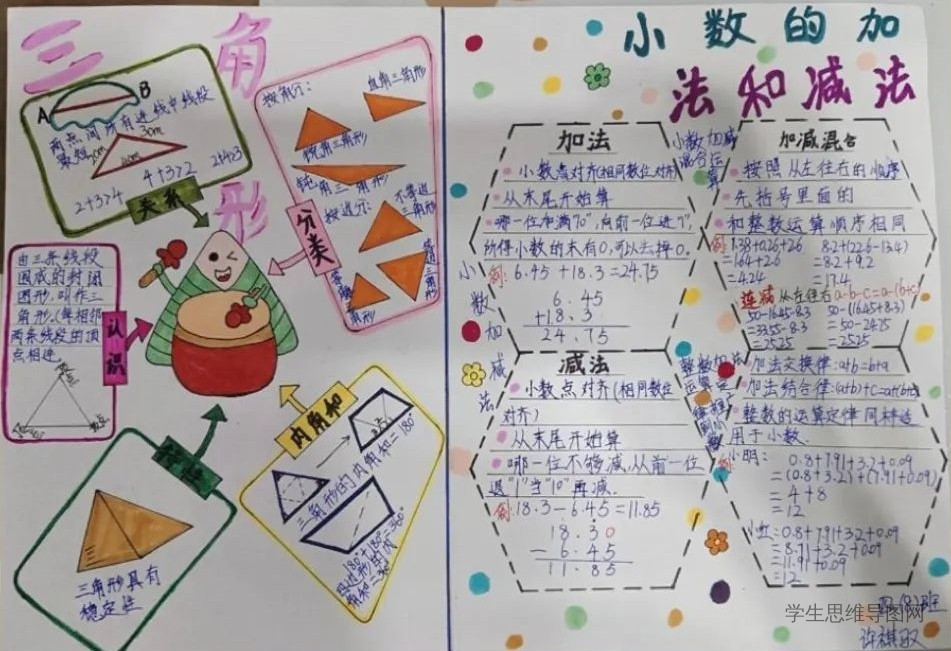 三角形
A
B
两点间所有连线中线段
最短
3cm
2+3>4
4+3>2
2+4>3
关系
按角分:
直角三角形
锐角三角形
钝角三角形
按边分:
不等边
三角形
分类
由三条线段
围成的封闭
图形,叫作三
角形。(每相邻
两条线段的顶
点相连
认识
顶点
三角形具有
稳定性
内角和
三角形的内角和=180°
180°+180°=360°
小数的加
法和减法
加法
小数点对齐(相同数位对齐)
从末尾开始算
哪一位加满"10",向前一位进"1",
所得小数的末有0,可以去掉0。
例:6.45+18.3=24.75
6.45
+18.3
24.75
小数加减法
减法
小数点对齐(相同数位
对齐)
从末尾开始算
哪一位不够减,从前一位
退"1"当"10"再减.
例:18.3-6.45=11.85
18.30
-6.45
11.85
小数加减
混合运算
加减混合
按照从左往右的顺序
先括号里面的
和整数运算顺序相同
例
1.38+0.26+2.6
=1.64+2.6
=4.24
8.2+(22.6-13.4)
=8.2+9.2
=17.4
连减 从左往右 a-b-c=a-(b+c)
50-16.45-8.3
=33.55-8.3
=25.25
50-(16.45+8.3)
=50-24.75
=25.25
整数加法
加法交换律:a+b=b+a
加法结合律:(a+b)+c=a+(b+c)
整数的运算定律同样适
用于小数.
例
小明:
0.8+7.91+3.2+0.09
=(0.8+3.2)+(7.91+0.09)
=4+8
=12
小红:0.8+7.91+3.2+0.09
=8.71+3.2+0.09
=11.91+0.09
=12
四(8)班
学生思维导图网